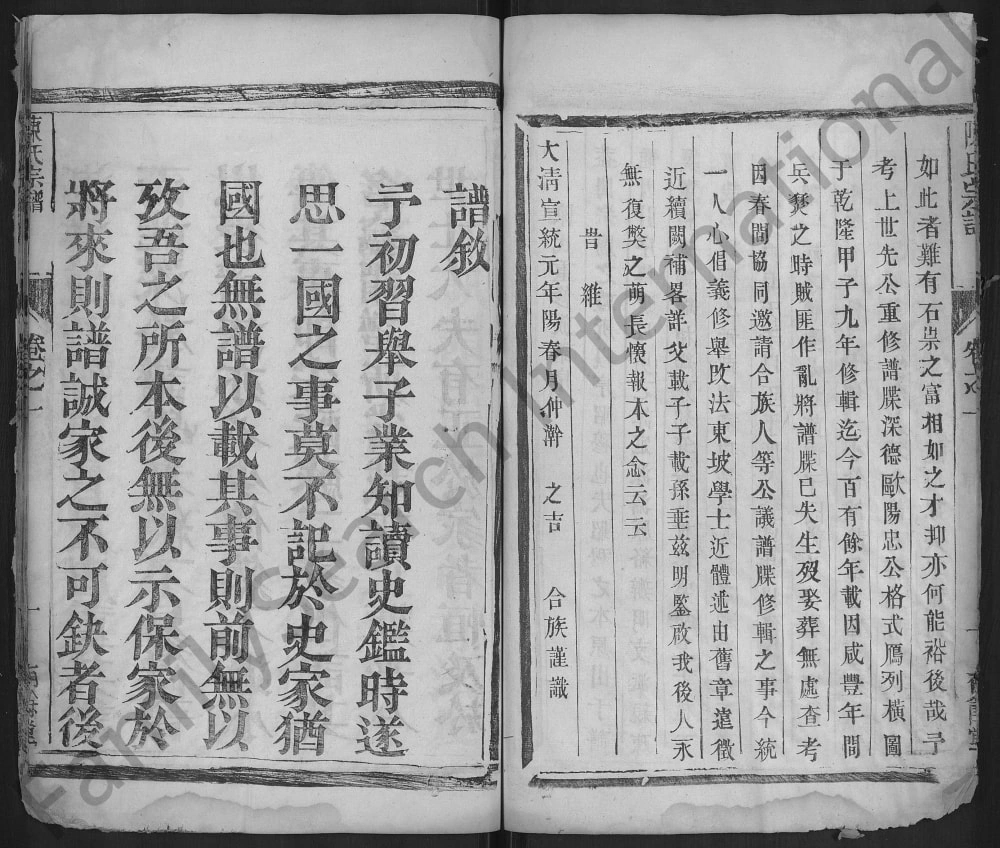 陳氏宗譜
卷之一
如此者難有石崇之富相如之才抑亦何能裕後哉予
考上世先公重修譜牒深德歐陽忠公格式鴈列橫圖
于乾隆甲子九年修輯迄今百有餘年載因咸豐年間
兵燹之時賊匪作亂將譜牒已失生歿娶葬無處查考
因春間協同邀請合族人等公議譜牒修輯之事今統
一人心倡義修舉攺法東坡學士近體遞由舊章遠徵
近續闕補畧詳父載子子載孫垂兹明鑒啟我後人永
無復獘之萌長懷報本之念云云
旹維
大清宣統元年陽春月仲澣 之吉 合族謹識
陳氏宗譜
卷之一
一
譜敘
予初習舉子業知讀史鑑時遂
思一國之事莫不記於史家猶
國也無譜以載其事則前無以
攷吾之所本後無以示保家於
將來則譜誠家之不可缺者後
FamilySearch International